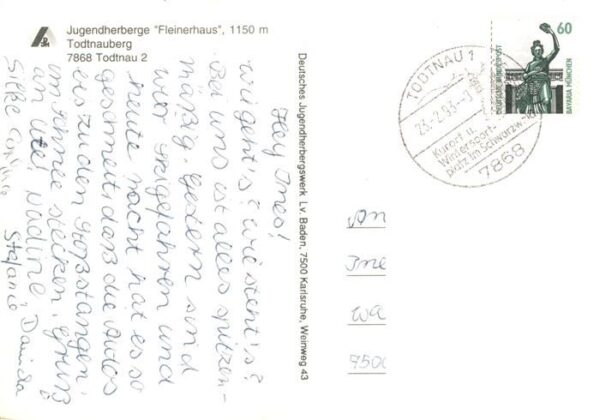 Jugendherberge "Fleinerhaus", 1150 m
Todtnauberg
7868 Todtnau 2
Deutsches Jugendherbergswerk Lv. Baden, 7500 Karlsruhe, Weinweg 43
60
DEUTSCHE BUNDESPOST
BAVARIA MÜNCHEN
TODTNAU 1
23.-2.93.-
Kurort u.
Wintersport-
platz im Schwarzwald
7868
Hey Ines!
wie geht's? wie steht's?
Bei uns ist alles spitzen-
mäßig. Gestern sind
wir skigefahren und
heute nacht hat es so
geschneit, daß die Autos
bis zu den Stoßstangen
im Schnee stecken. Gruß
an alle! Nadine
Silke
Stefanie Daniela
An
Ine
Wa
750